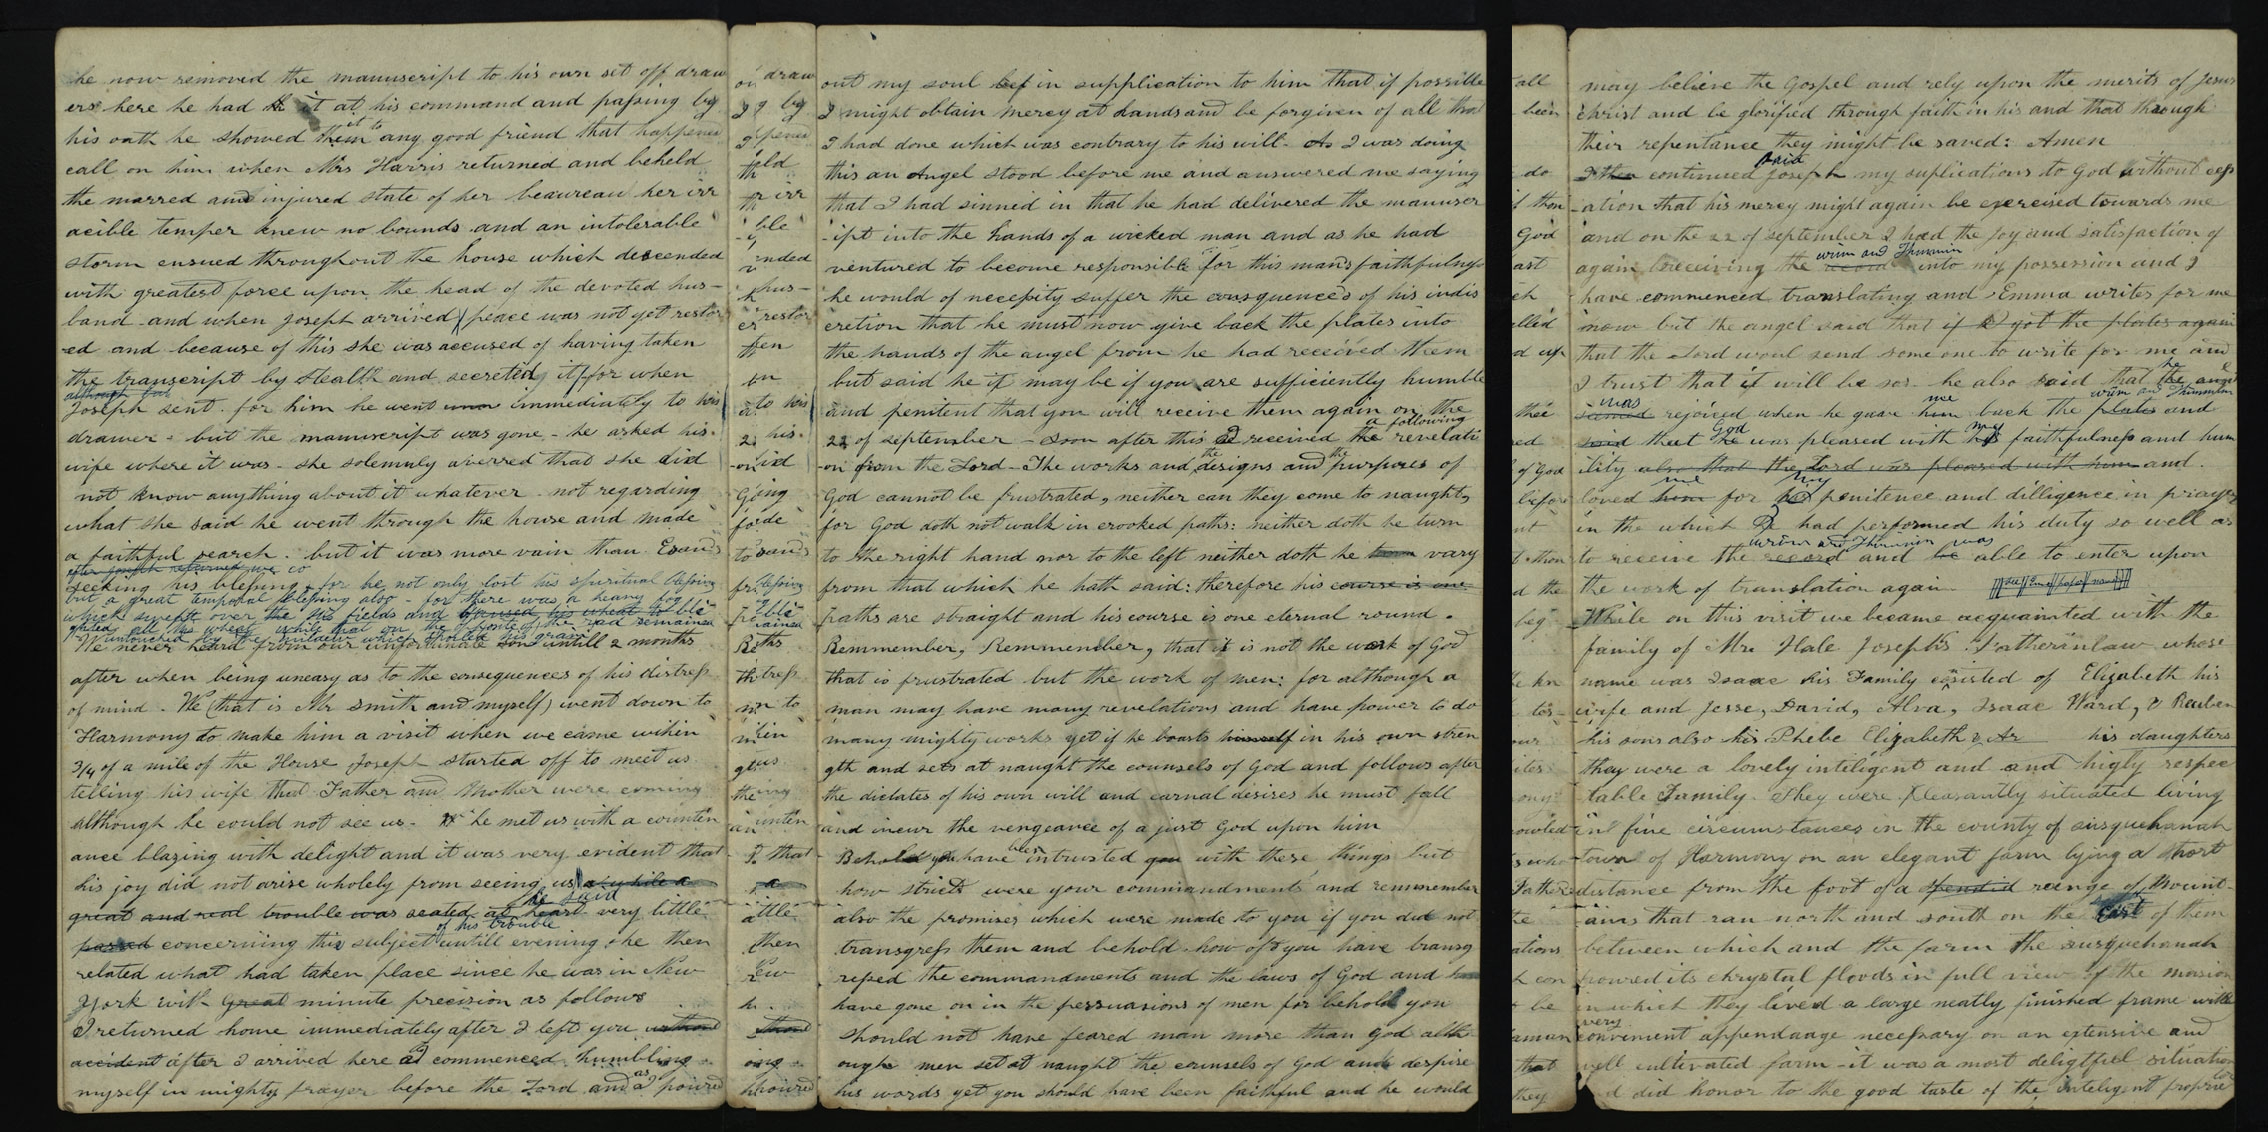 he now removed the manuscript to his own set off draw
ers here he had it at his command and passing by
his oath he showed it to any good friend that happened
call on him when Mrs Harris returned and beheld
the marred and injured state of her beaureau her irr
acible temper knew no bounds and an intolerable
storm ensued throughout the house which descended
with greatest force upon the head of the devoted hus-
band and when Joseph arrived peace was not yet restor
ed and because of this she was accused of having taken
the transcript by stealth and secreted it for when
although but
Joseph sent for him he went immediately to his
drawer - but the manuscript was gone - he asked his
wife where it was - she solemnly averred that she did
not know anything about it whatever not regarding
what she said he went through the house and made
a faithful search. but it was more vain than Esau's
after Joseph returned we co
seeking his blessing for he not only lost his spiritual blessing
but a great temporal blessing also - for there was a heavy fog
which swept over the his fields and caused his wheat to bli
ghted all his wheat while that on the oponte of the rad remained
untouched by the mildew which spoiled his grain
We never heard from our unfortunate son untill 2 months
after when being uneasy as to the consequences of his distress
of mind. We (that is Mr Smith and myself) went down to
Harmony to make him a visit when we came wihin
3/4 of a mile of the House Joseph started off to meet us
telling his wife that Father and Mother were coming
although he could not see us. he met us with a counten
ance blazing with delight and it was very evident that
his joy did not arise wholely from seeing us a while a
he said
great and real trouble was seated at heart very little
of his trouble
passed concerning this subject untill evening he then
related what had taken place since he was in New
York with great minute precision as follows
I returned home immediately after I left you without
accident after I arrived here I commenced humbling
myself in mighty prayer before the Lord and as I poured
out my soul bef in supplication to him that if possible
I might obtain mercy at hands and be forgiven of all that
I had done which was contrary to his will. As I was doing
this an Angel stood before me and answered me saying
that I had sinned in that he had delivered the manuscr
-ipt into the hands of a wicked man and as he had
ventured to become responsible for this mans faithfulness
he would of necessity suffer the consquences of his indis
cretion that he must now give back the plates into
the hands of the angel from he had received them
but said he it may be if you are sufficiently humble
and penitent that you will receive them again on the
a following
22 of september - Soon after this I received the revelati
the the
-on from the Lord - The works and designs and purposes of
God cannot be frustrated, neither can they come to naught,
for God doth not walk in crooked paths: neither doth he turn
to the right hand nor to the left neither doth he turn vary
from that which he hath said: therefore his course is one
paths are straight and his course is one eternal round.
Remmember, Remmember, that it is not the work of God
that is frustrated but the work of men: for although a
man may have many revelations and have power to do
many mighty works yet if he boasts himself in his own stren
gth and sets at naught the counsels of God and follows after
the dictates of his own will and carnal desires he must fall
and incur the vengeance of a just God upon him
been
Behold you have intrusted you with these things but
how strict were your commandments and remmember
also the promises which were made to you if you did not
transgress them and behold how oft you have transg
ressed the commandments and the laws of God and
have gone on in the perssuasions of men for behold you
should not have feared man more than God alth
ough men set at naught the counsels of God and despise
his words yet you should have been faithful and he would
may believe the Gospel and rely upon the merits of Jesus
christ and be glorified through faith in his and that through
their repentance they might be saved: Amen
said
I then continued Joseph my suplications to God without cess
-ation that his mercy might again be exercised towards me
and on the 22 of september I had the joy and satisfaction of
urim and Thummim
again receiving the record into my possession and I
have commenced translating and Emma writes for me
now but the angel said that if I got the plates again
that the Lord woul send some one to write for me and
he
I trust that it will be so. he also said that the angel
was me urim and Thummim
seemed rejoiced when he gave him back the plates and
God my
said that he was pleased with his faithfulness and hum
ility also that the Lord was pleased with him and
me my
loved him for his penitence and dilligence in prayer
in the which I had performed his duty so well as
urim and Thummim was
to receive the record and be able to enter upon
the work of translation again
While on this visit we became acquainted with the
family of Mr. Hale Joseph's Fatherinlaw whose
name was Isaac his Family consisted of Elizabeth his
wife and Jesse, David, Alva, Isaac Ward, & Reuben
his sons also his Phebe Elizabeth & Ar his daughters
they were a lovely inteligent and and higly respec
table Family. They were pleasantly situated living
in fine circumstances in the county of susquehanah
town of Harmony on an elegant farm lying a short
distance from the foot of a spendid range of Mount-
-ains that ran north and south on the East of them
between which and the farm the susquehanah
powred its chrystal floods in full view of the mansion
in which they lived a large neatly finished frame with
every
convenient appendaage necessary on an extensive and
well cultivated farm - it was a most deligtful situation
did honor to the good taste of the inteligent proprie
tor